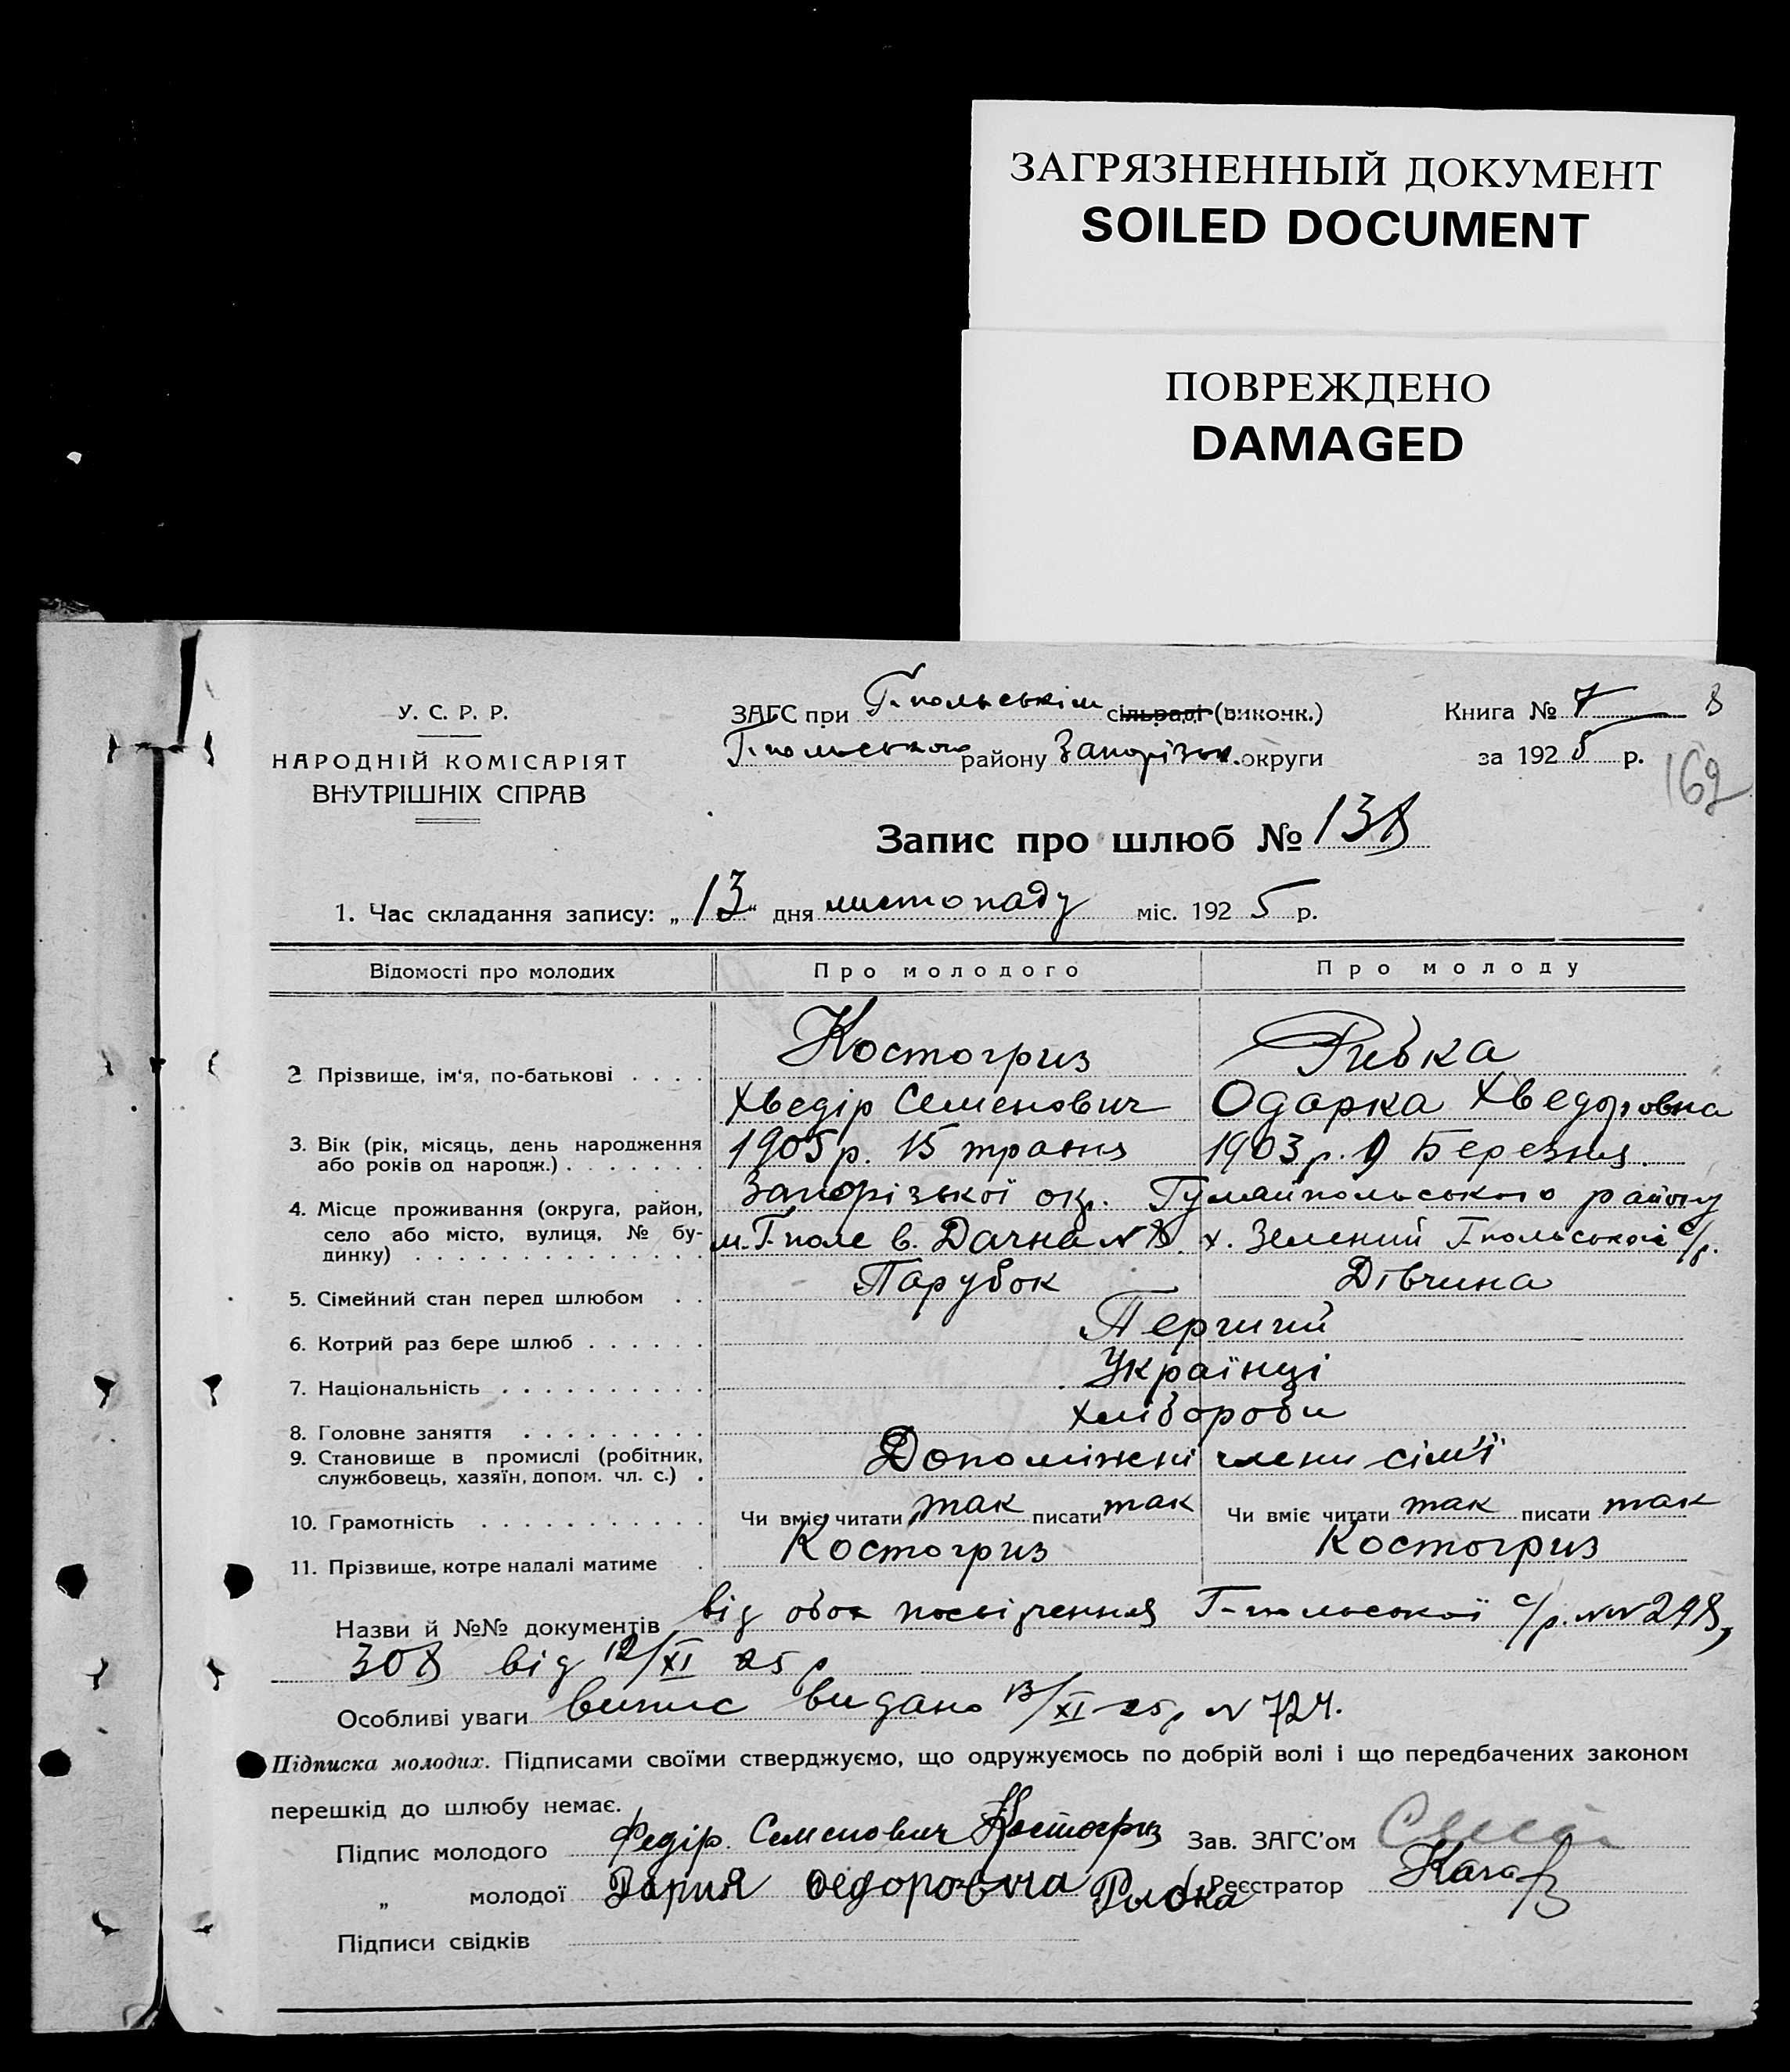 ЗАГРЯЗНЕННЫЙ ДОКУМЕНТ
SOILED DOCUMENT
ПОВРЕЖДЕНО
DAMAGED
У. С. Р. Р.
НАРОДНІЙ КОМІСАРІЯТ
ВНУТРІШНІХ СПРАВ
ЗАГС при Г-польськім сільраді (виконк.)
Г-польського району Запорізьк. округи
Книга № 7
за 1925 р.
162
Запис про шлюб № 138
1. Час складання запису: „13" дня листопаду міс. 1925 р.
Відомості про молодих Про молодого Про молоду
Костогриз Рибка
2 Прізвище, ім'я, по-батькові . . . .
Хведір Семенович Одарка Хведоровна
3. Вік (рік, місяць, день народження
або років од народж.) . . . . . . . 1905 р. 15 травня 1903 р. 9 Березня.
4. Місце проживання (округа, район, Запорізької окр. Гуляйпольського району
село або місто, вулиця, № бу- м. Г-поле в. Дачна N 8. х. Зелений Г-польської с/р.
динку) . . . . . . . . . . . . . .
5. Сімейний стан перед шлюбом . . Парубок Дівчина
6. Котрий раз бере шлюб . . . . . . Перший
7. Національність . . . . . . . . . . Українці
8. Головне заняття . . . . . . . . . хлібороби
9. Становище в промислі (робітник, Допоміжні члени сім'ї
службовець, хазяїн, допом. чл. с.) .
10. Грамотність . . . . . . . . . . . Чи вміє читати так писати так Чи вміє читати так писати так
11. Прізвище, котре надалі матиме . Костогриз Костогриз
Назви й №№ документів від обох посвідчення Г-польської с/р. NN 298,
308 від 12/XI 25 р
Особливі уваги випис видано 13/XI-25 р N 724.
Підписка молодих. Підписами своїми стверджуємо, що одружуємось по добрій волі і що передбачених законом
перешкід до шлюбу немає.
Підпис молодого Федір. Семенович Костогриз Зав. ЗАГС'ом
„ молодої Дария Федоровна Рыбка Реєстратор
Підписи свідків